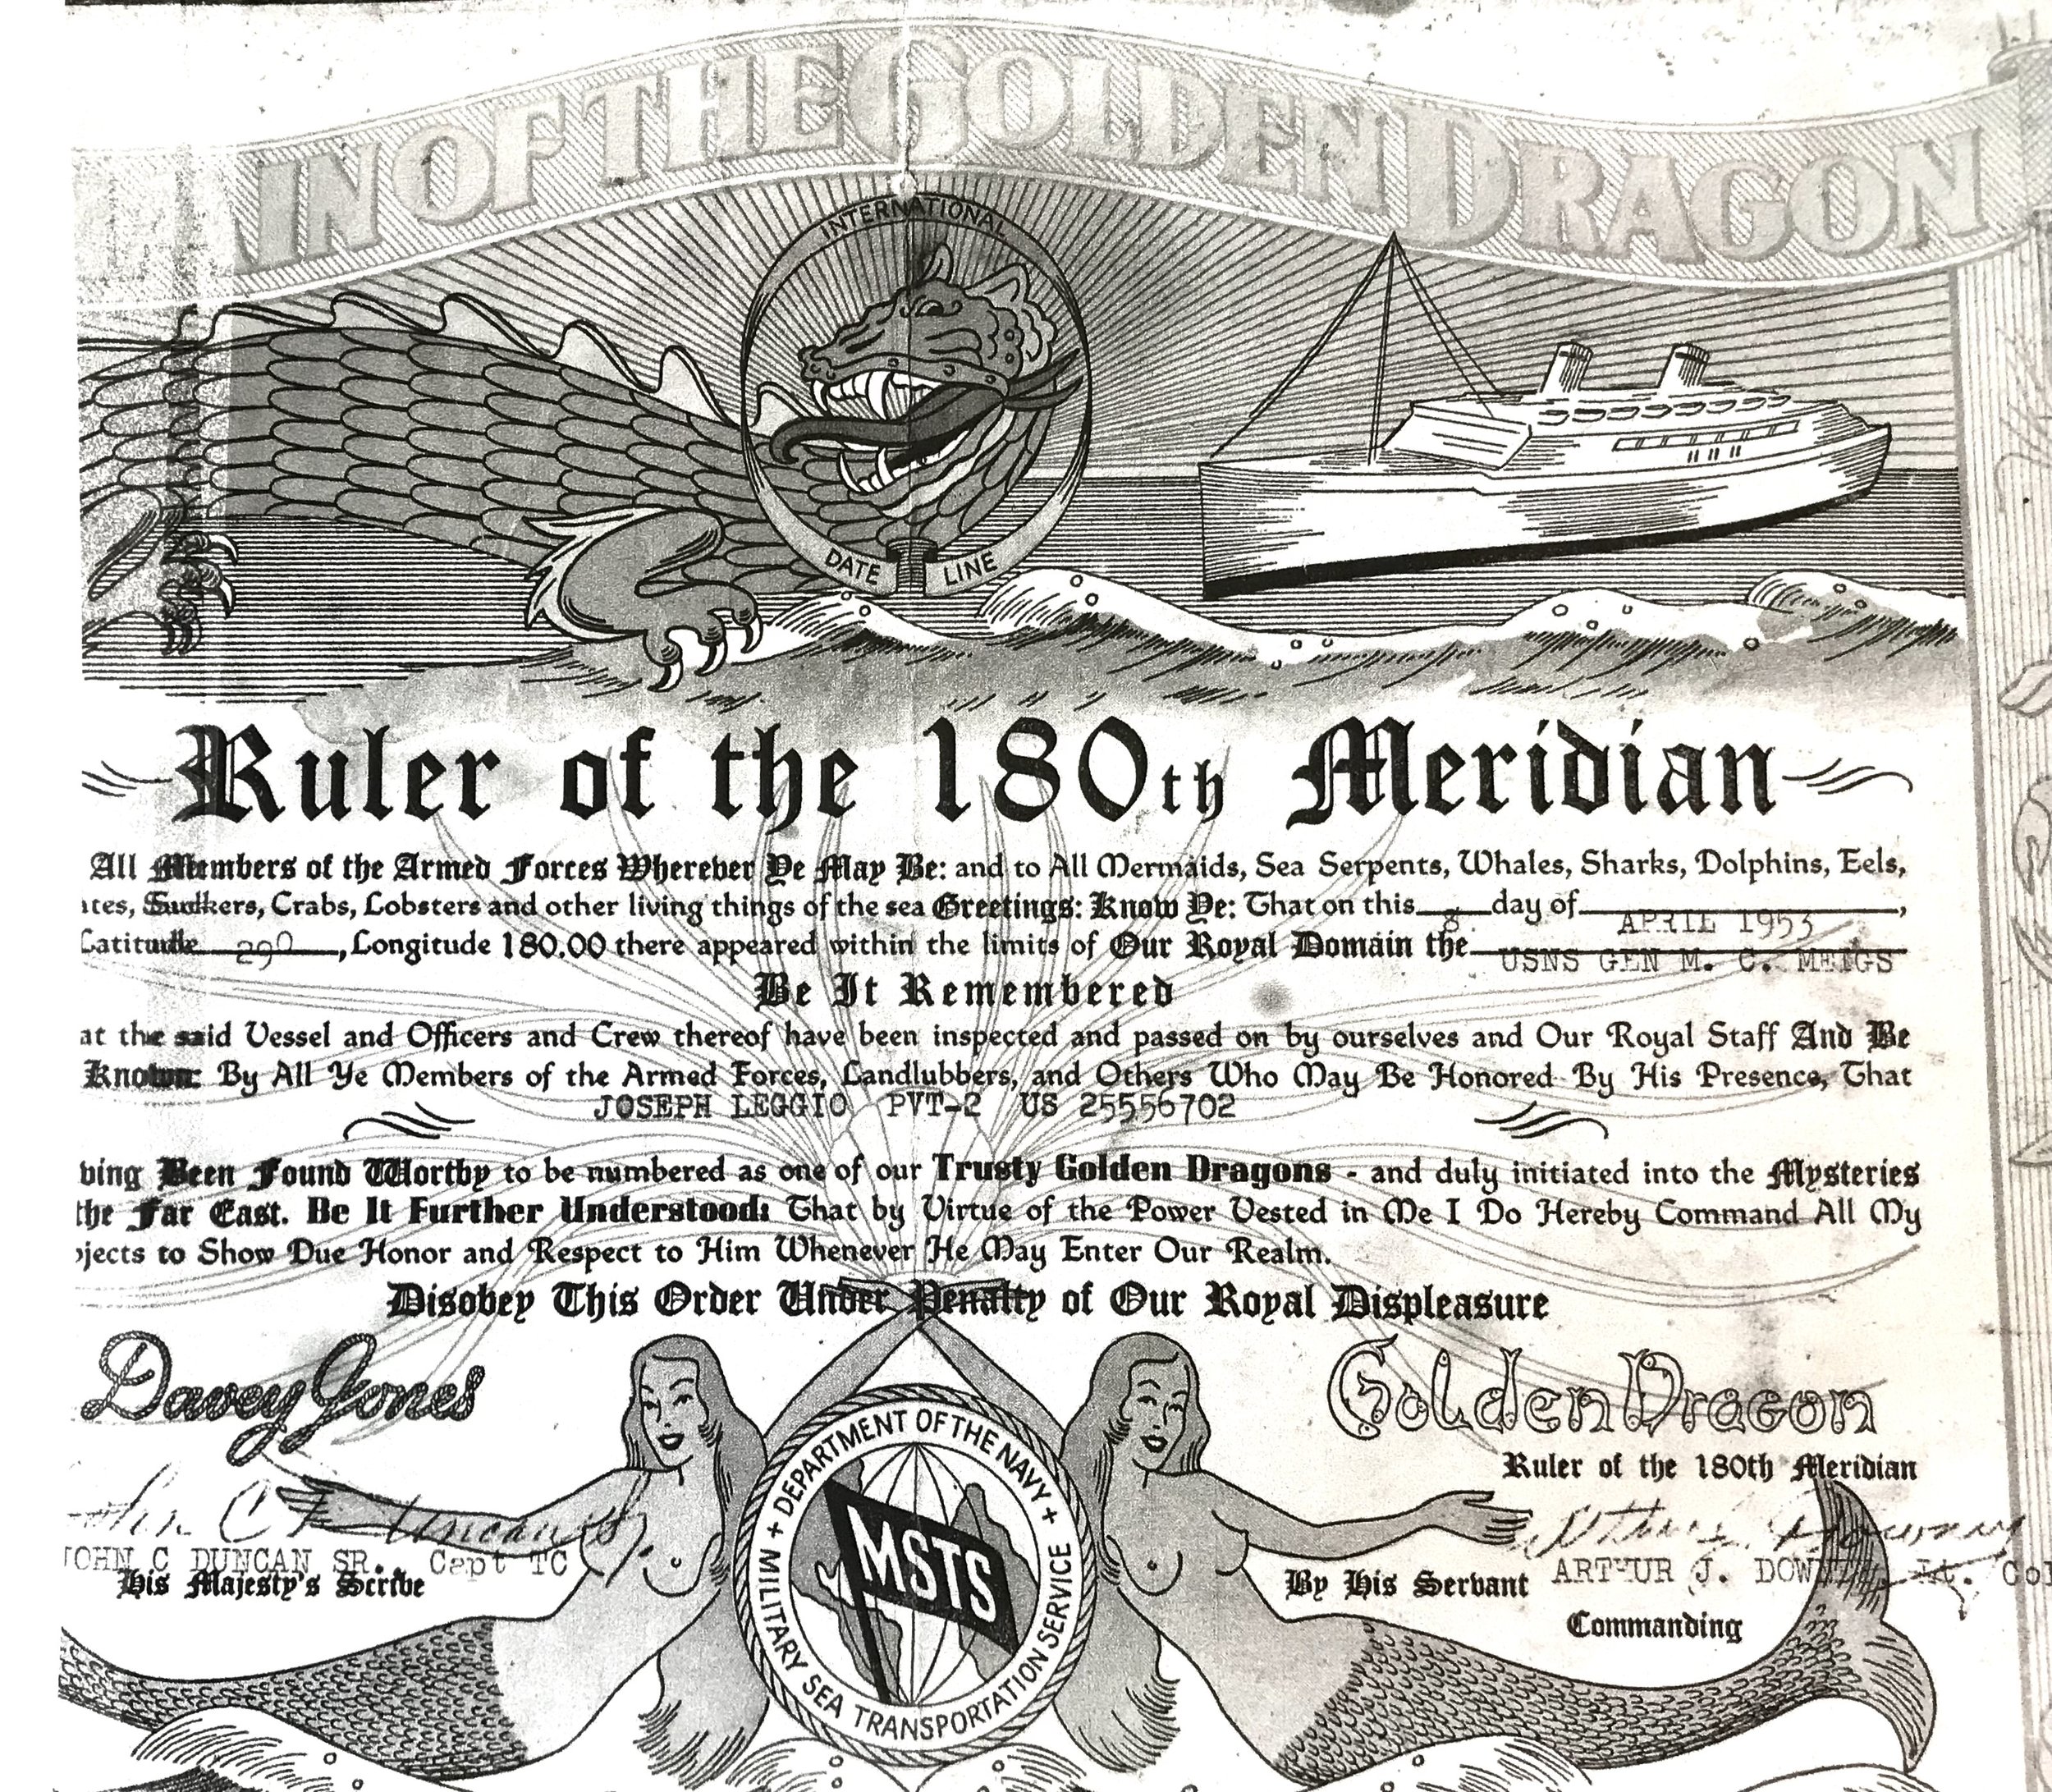 IN OF THE GOLDEN DRAGON
INTERNATIONAL
DATE LINE
Ruler of the 180th Meridian
All Members of the Armed Forces Wherever Ye May Be: and to All Mermaids, Sea Serpents, Whales, Sharks, Dolphins, Eels,
ates, Suckers, Crabs, Lobsters and other living things of the sea Greetings: Know Ye: That on this 8 day of APRIL 1953,
Latitude 290, Longitude 180.00 there appeared within the limits of Our Royal Domain the USNS GEN M. C. MEIGS
Be It Remembered
at the said Vessel and Officers and Crew thereof have been inspected and passed on by ourselves and Our Royal Staff And Be
Known: By All Ye Members of the Armed Forces, Landlubbers, and Others Who May Be Honored By His Presence, That
JOSEPH LEGGIO PVT-2 US 25556702
ving Been Found Worthy to be numbered as one of our Trusty Golden Dragons - and duly initiated into the Mysteries
the Far East. Be It Further Understood: That by Virtue of the Power Vested in Me I Do Hereby Command All My
bjects to Show Due Honor and Respect to Him Whenever He May Enter Our Realm.
Disobey This Order Under Penalty of Our Royal Displeasure
Davey Jones
Golden Dragon
Ruler of the 180th Meridian
John C Duncan Sr.
JOHN C DUNCAN SR. Capt TC
His Majesty's Scribe
By His Servant ARTHUR J. Lt. Col
Commanding
+ DEPARTMENT OF THE NAVY +
MSTS
MILITARY SEA TRANSPORTATION SERVICE